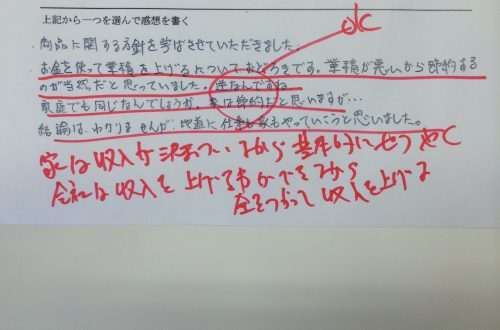 上記から一つを選んで感想を書く
OK
商品に関する方針を学ばさせていただきました。
お金を使って業績を上げるについておどろきです。業績が悪いから節約する
のが当然だと思っていました。逆なんですね
家庭でも同じなんでしょうか。家は節約だと思いますが…
結論は、わかりませんが、地道に仕事も家もやっていこうと思いました。
家は収入が決まっているから基本的にせつやく
会社は収入を上げる事ができるから
金をつかって収入を上げる